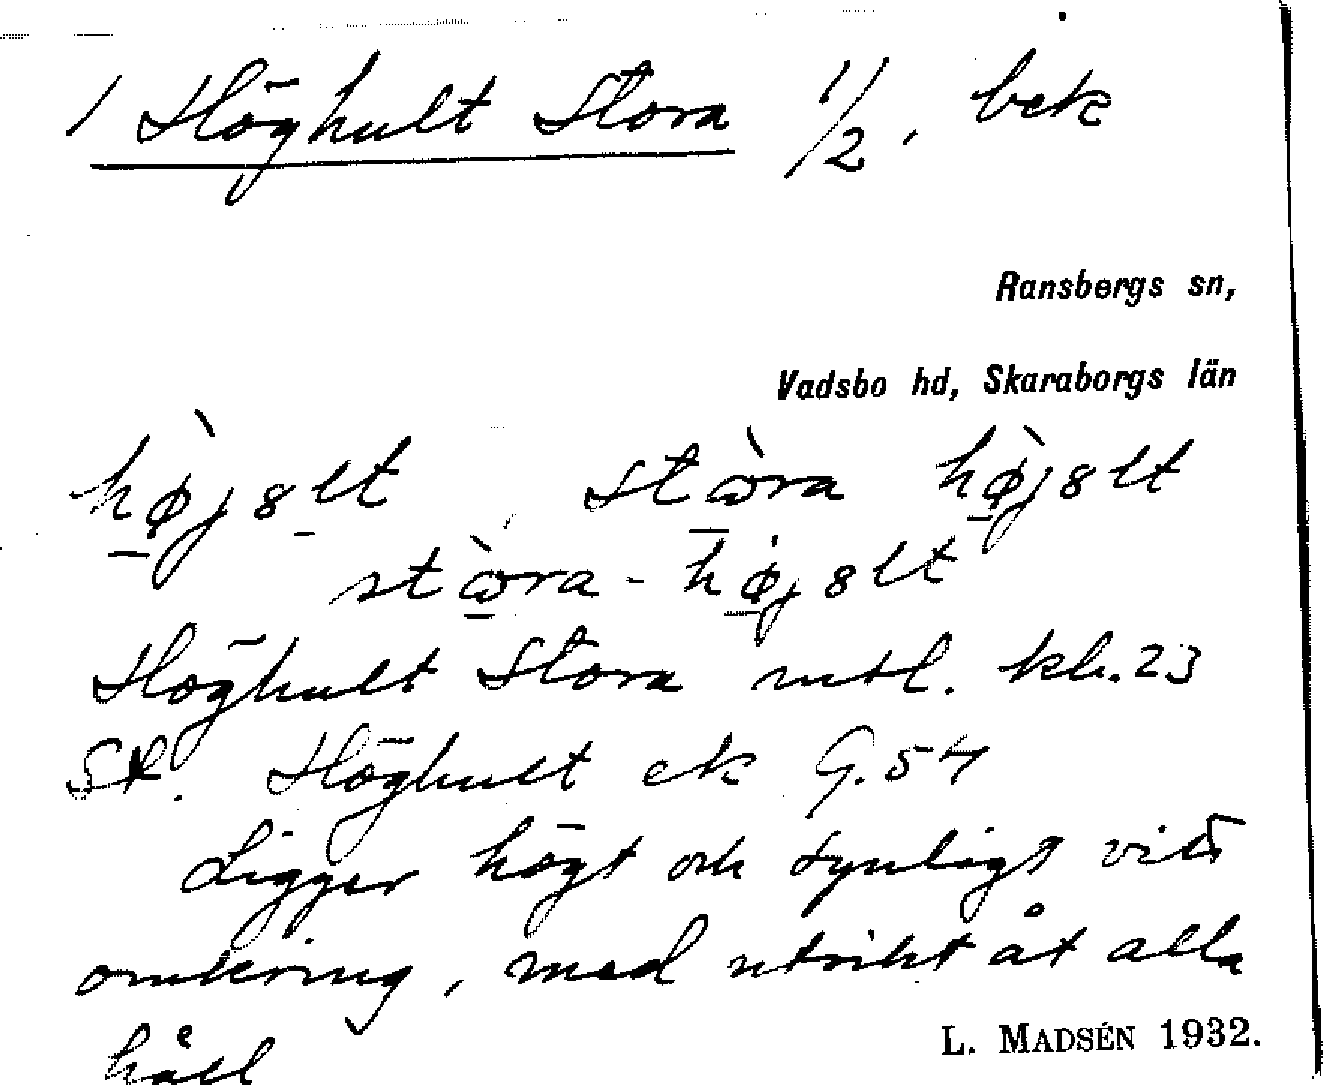 1 Höghult Stora 1/2, bek
Ransbergs sn,
Vadsbo hd, Skaraborgs län
hø̀jslt, stɷ̀ra hø̀jslt
stɷ̀ra-højslt
Höghult Stora mtl. kb. 23
St. Höghult ek G. 54
Ligger högt och synligt vitt
omkring, med utsikt åt alla
håll
L. MADSÉN 1932.